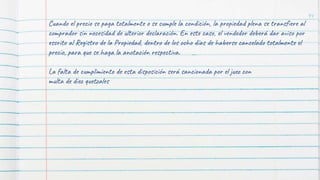 Cuando el precio se paga totalmente o se cumple la condición, la propiedad plena se transfiere al
comprador sin necesidad de ulterior declaración. En este caso, el vendedor deberá dar aviso por
escrito al Registro de la Propiedad, dentro de los ocho días de haberse cancelado totalmente el
precio, para que se haga la anotación respectiva.
La falta de cumplimiento de esta disposición será sancionada por el juez con
multa de diez quetzales